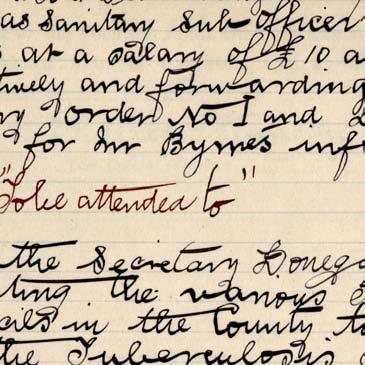 as Sanitary Sub-Officer
at a salary of £10 a
tively and forwarding
Order No I and
for Mr Byrnes inf
"To be attended to"
the Secretary Donega
ting the various
cils in the County to
the Tuberculosis